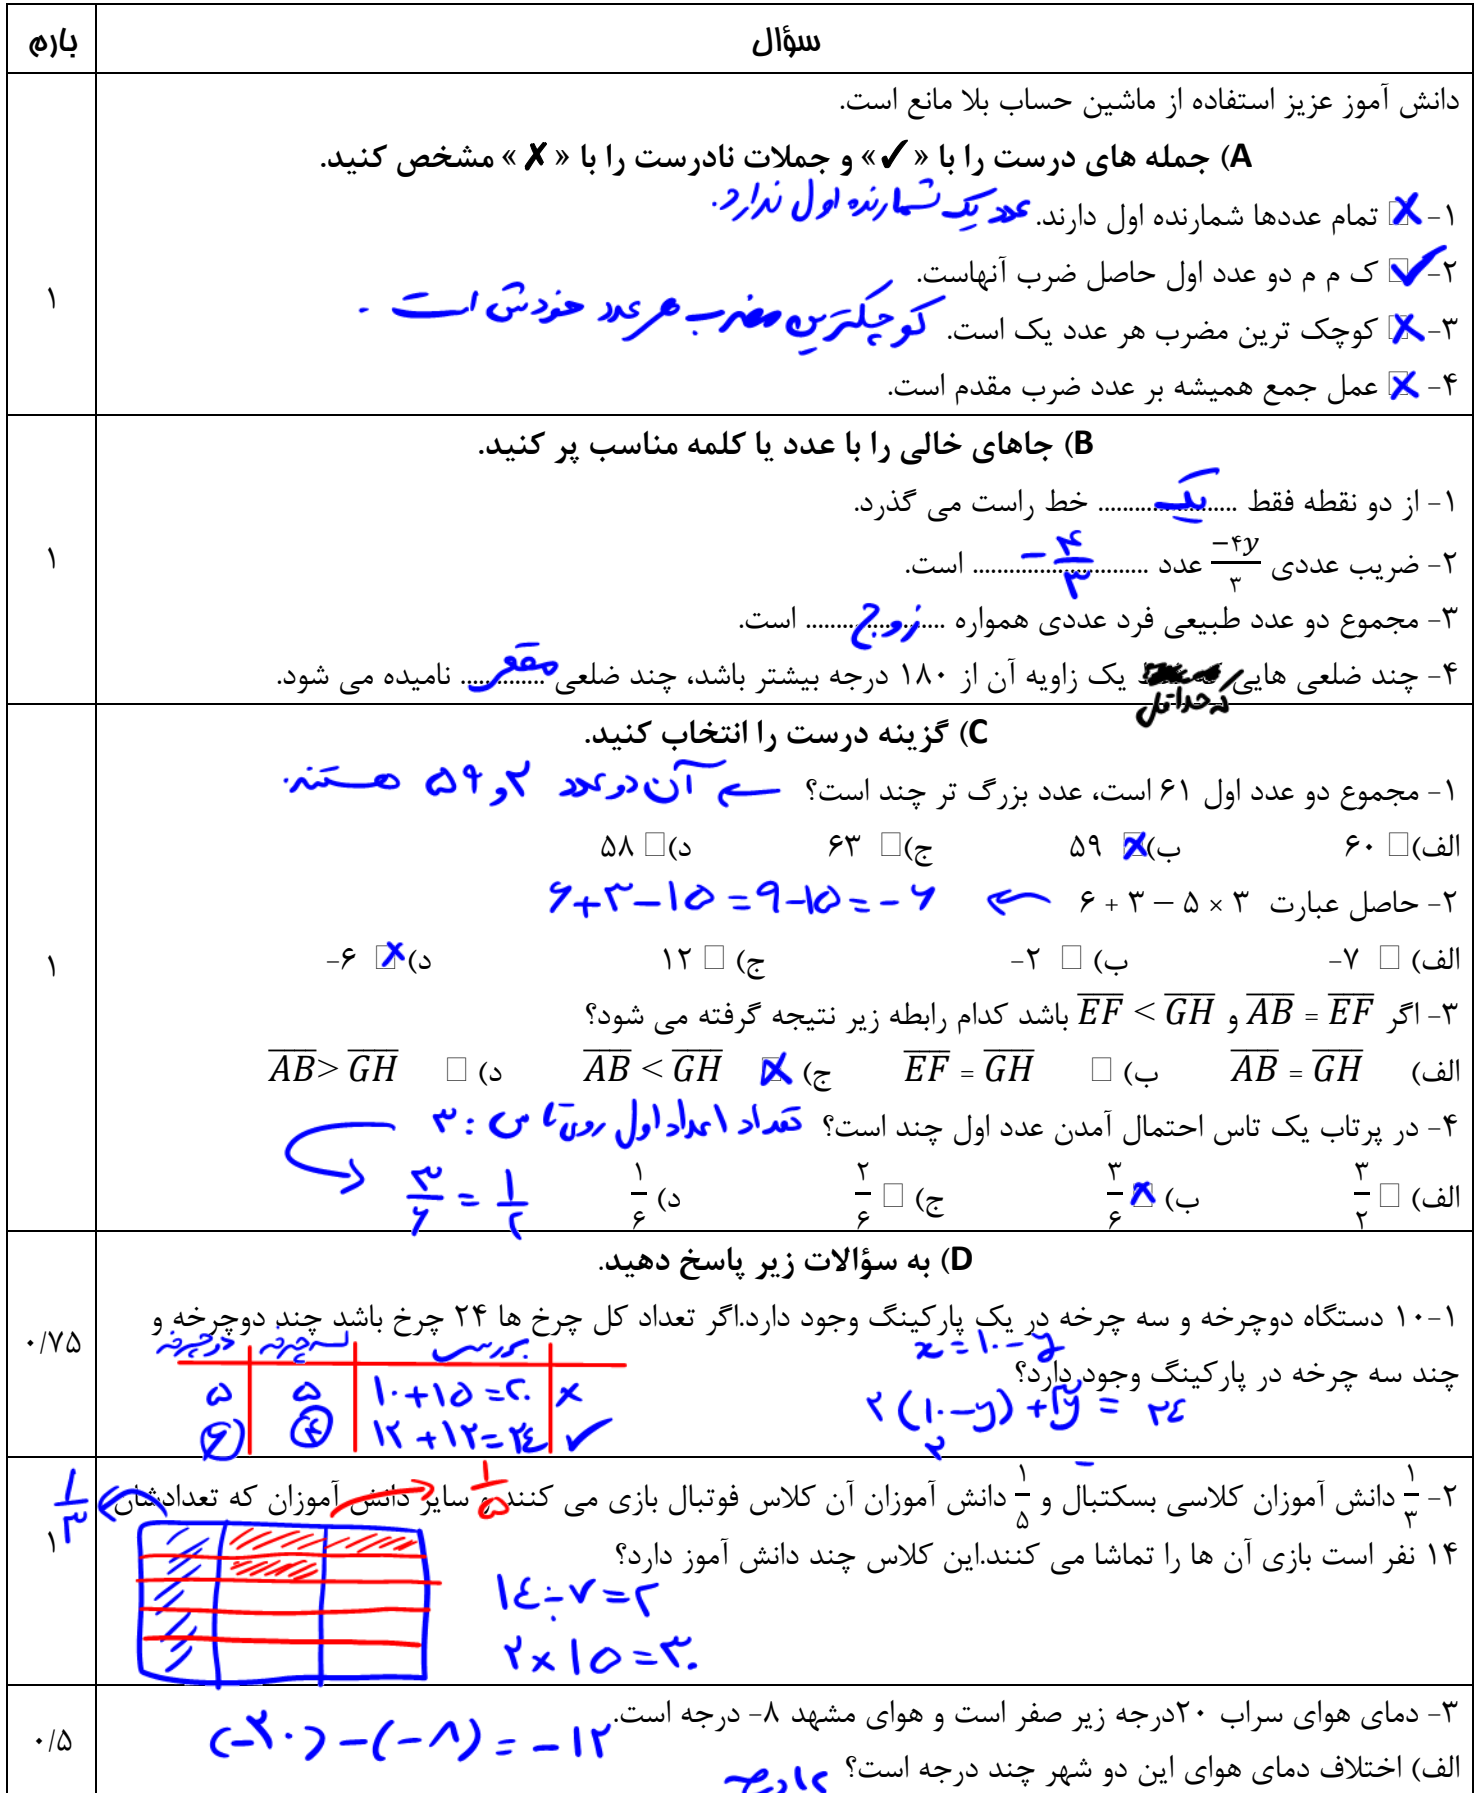 سؤال
بارم
دانش آموز عزیز استفاده از ماشین حساب بلا مانع است.
A) جمله های درست را با «✓» و جملات نادرست را با «✗» مشخص کنید.
۱- ☒ تمام عددها شمارنده اول دارند. عدد یک شمارنده اول ندارد.
۲- ✓ ک م م دو عدد اول حاصل ضرب آنهاست.
۳- ☒ کوچک ترین مضرب هر عدد یک است. کوچکترین مضرب هر عدد خودش است.
۴- ☒ عمل جمع همیشه بر عدد ضرب مقدم است.
۱
B) جاهای خالی را با عدد یا کلمه مناسب پر کنید.
۱- از دو نقطه فقط .... یک .... خط راست می گذرد.
۲- ضریب عددی −۴y/۳ عدد .... −۴/۳ .... است.
۳- مجموع دو عدد طبیعی فرد عددی همواره .... زوج .... است.
۴- چند ضلعی هایی که حداقل یک زاویه آن از ۱۸۰ درجه بیشتر باشد، چند ضلعی .... مقعر .... نامیده می شود.
۱
C) گزینه درست را انتخاب کنید.
۱- مجموع دو عدد اول ۶۱ است، عدد بزرگ تر چند است؟ ← آن دو عدد ۲ و ۵۹ هستند.
الف)□ ۶۰ ب)☒ ۵۹ ج)□ ۶۳ د)□ ۵۸
۲- حاصل عبارت ۶ + ۳ − ۵ × ۳ ← ۶+۳−۱۵=۹−۱۵=−۶
الف) □ ۷- ب) □ ۲- ج) □ ۱۲ د)☒ ۶-
۳- اگر AB = EF و EF < GH باشد کدام رابطه زیر نتیجه گرفته می شود؟
الف) AB = GH ب) □ EF = GH ج) ☒ AB < GH د) □ AB> GH
۴- در پرتاب یک تاس احتمال آمدن عدد اول چند است؟ تعداد اعداد اول روی تاس : ۳
الف) □ ۳/۲ ب) ☒ ۳/۶ ج) □ ۲/۶ د) ۱/۶ ۳/۶ = ۱/۲
۱
D) به سؤالات زیر پاسخ دهید.
۱-۱۰ دستگاه دوچرخه و سه چرخه در یک پارکینگ وجود دارد.اگر تعداد کل چرخ ها ۲۴ چرخ باشد چند دوچرخه و
چند سه چرخه در پارکینگ وجود دارد؟
x = ۱۰−y
۲(۱۰−y)+۳y = ۲۴
دوچرخه سه چرخه بررسی
۵ ۵ ۱۰+۱۵=۲۰ ×
۶ ۴ ۱۲+۱۲=۲۴ ✓
۰/۷۵
۲- ۱/۳ دانش آموزان کلاسی بسکتبال و ۱/۵ دانش آموزان آن کلاس فوتبال بازی می کنند و سایر دانش آموزان که تعدادشان
۱۴ نفر است بازی آن ها را تماشا می کنند.این کلاس چند دانش آموز دارد؟
۱/۳ ۱/۵
۱۴÷۷=۲
۲×۱۵=۳۰
۱
۳- دمای هوای سراب ۲۰درجه زیر صفر است و هوای مشهد ۸- درجه است.
(−۲۰)−(−۸)=−۱۲
الف) اختلاف دمای هوای این دو شهر چند درجه است؟
۰/۵